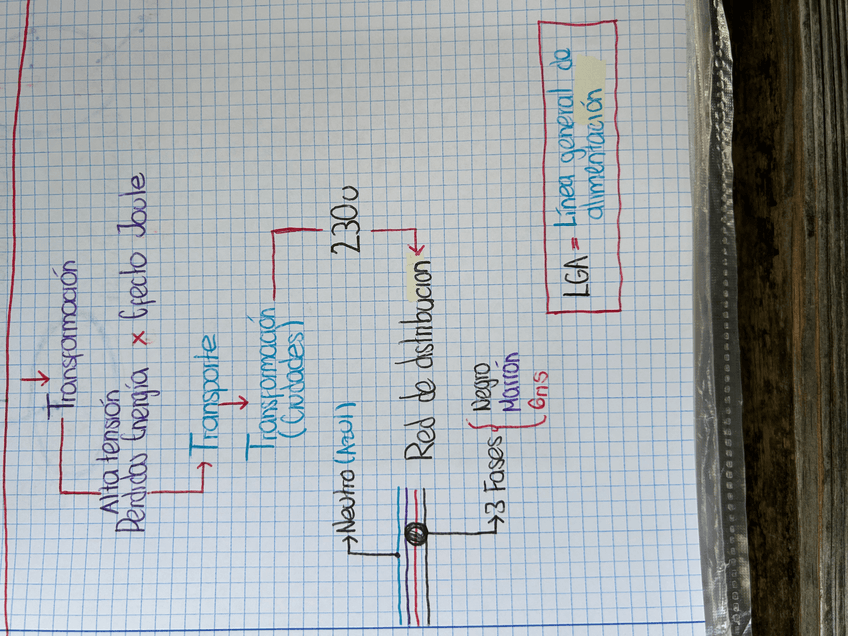 Transformación
Alta tensión
Perdidas Energía x Efecto Joule
Transporte
Transformación
(Ciudades)
230v
Neutro (Azul)
Red de distribucion
3 Fases
Negro
Marrón
Gris
LGA = Línea general de
alimentación